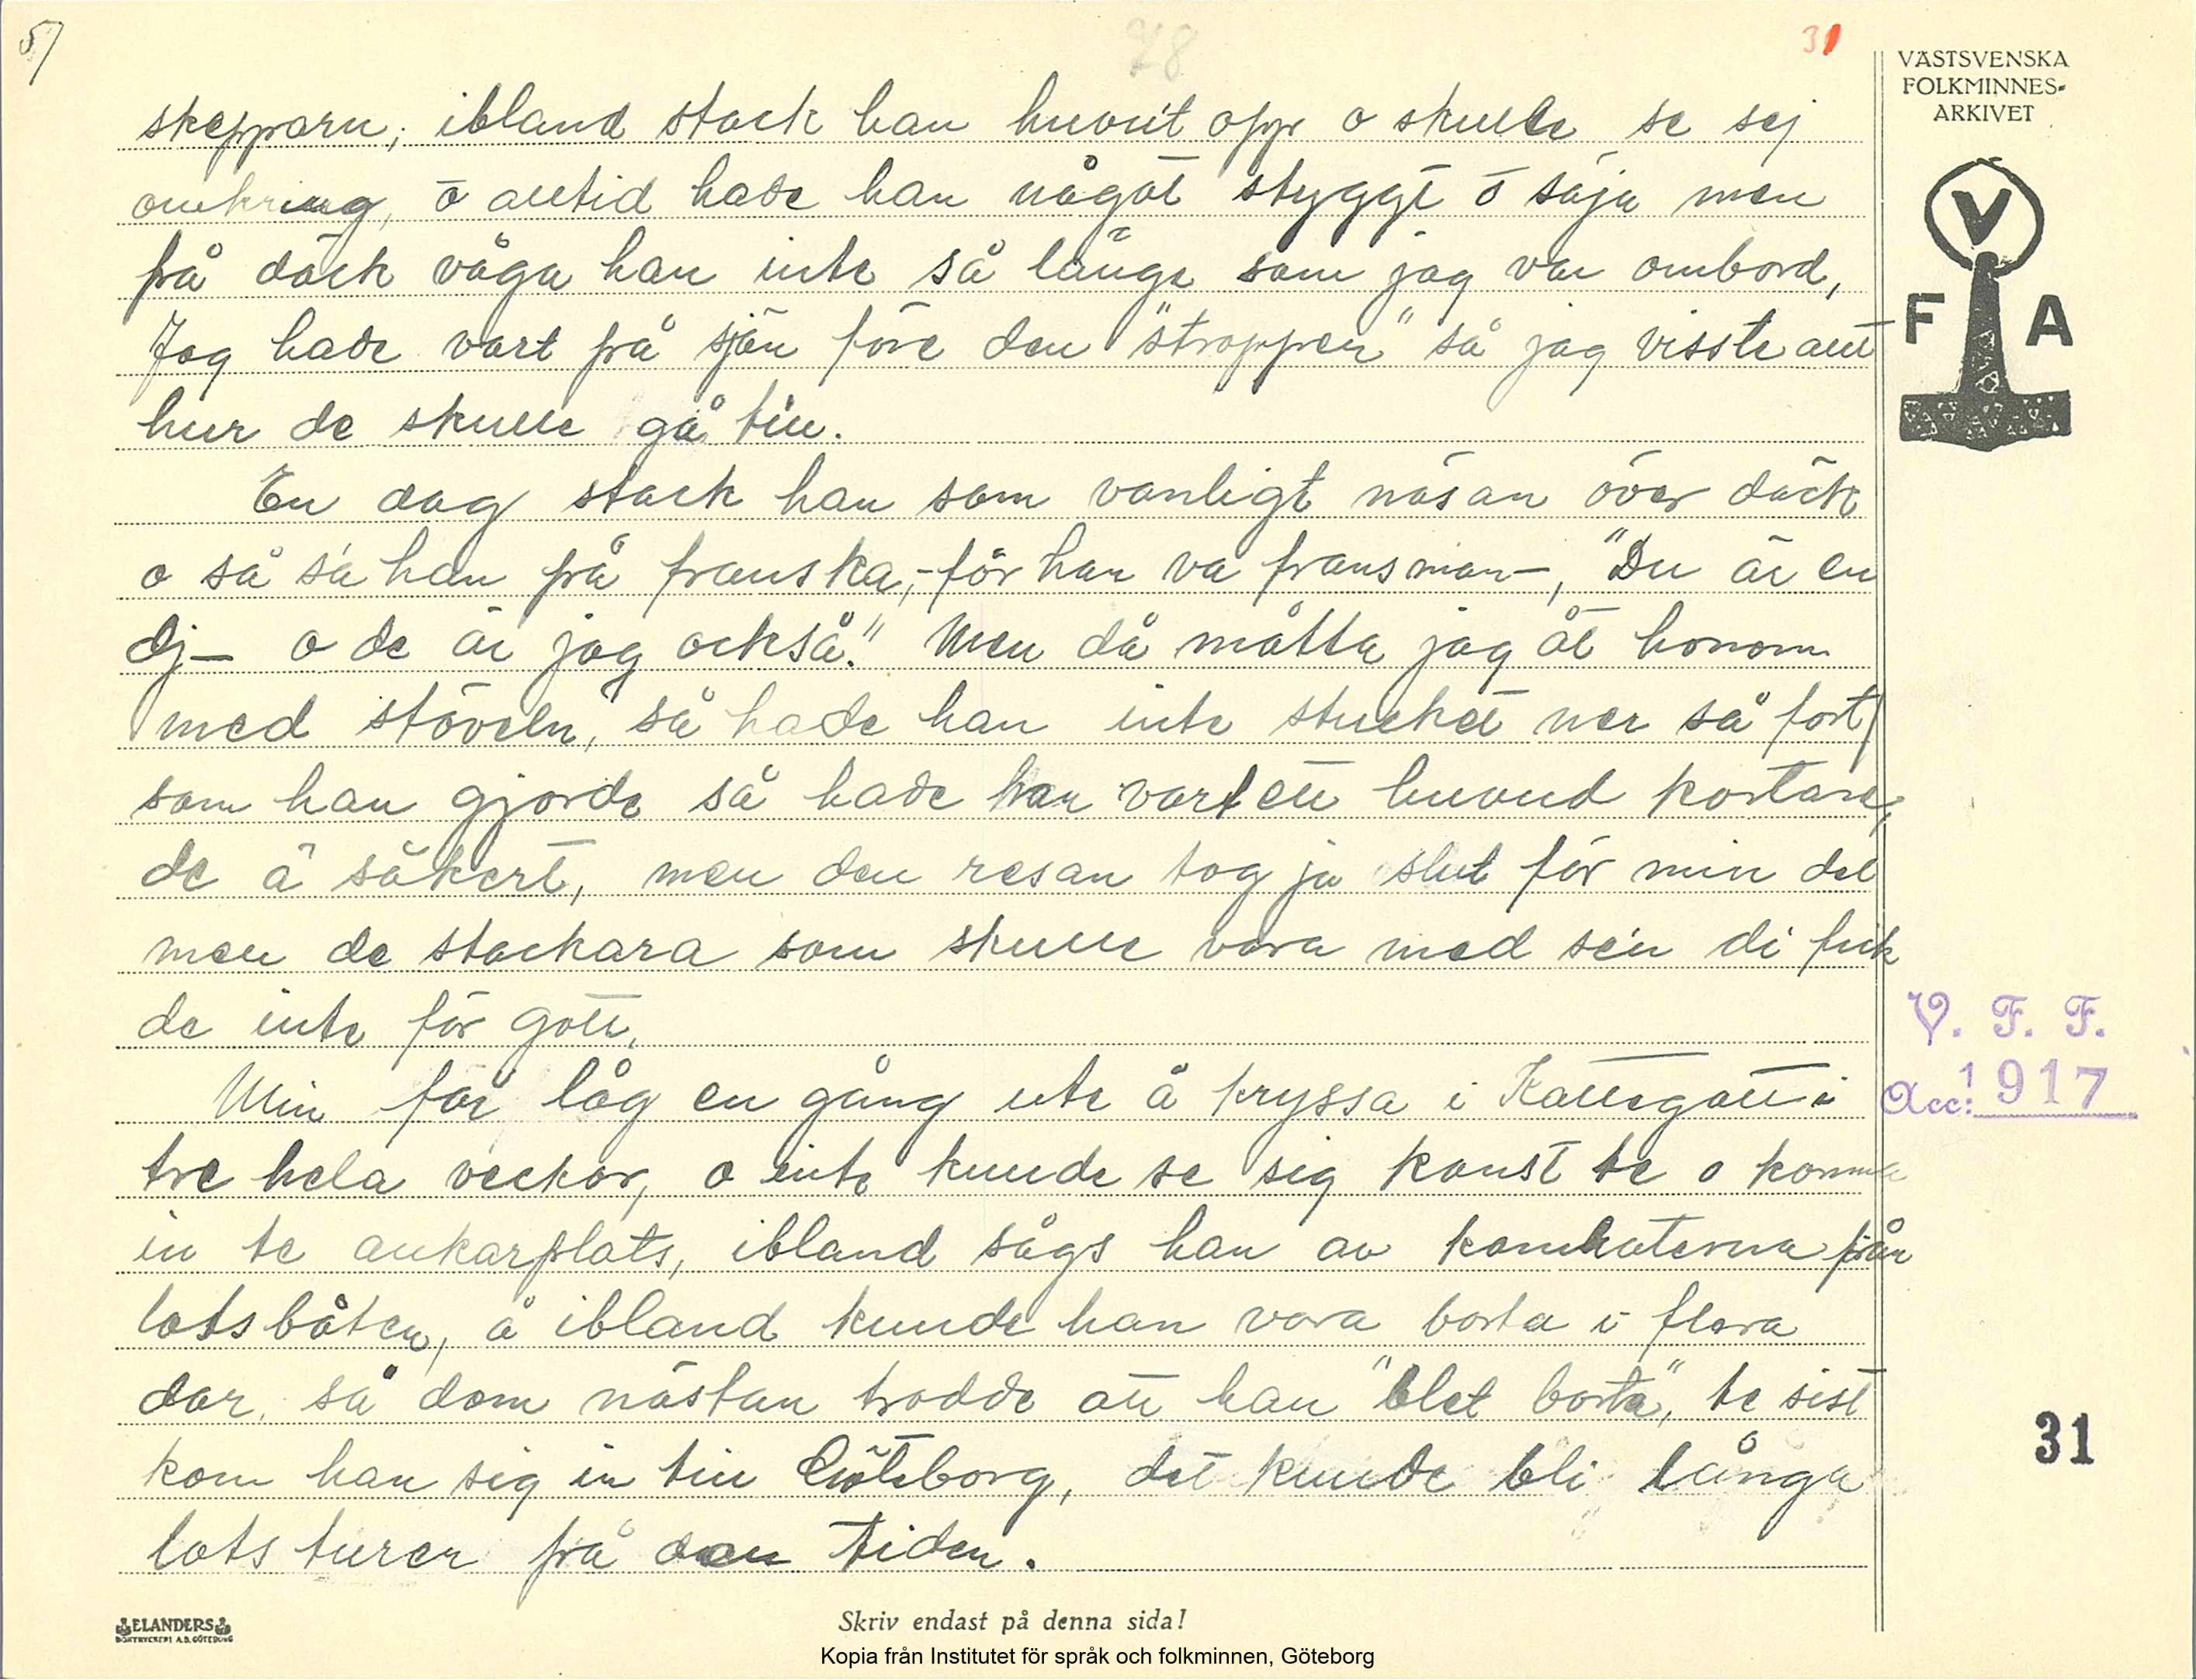 5/
78
31
VÄSTSVENSKA
FOLKMINNES-
ARKIVET
V
F A
skepparn; ibland stack han huvut opp o skulle se sej
omkring, o alltid hade han något styggt o säja men
på däck våga han inte så länge som jag var ombord,
Jag hade vart på sjön före den "stroppen" så jag visste allt
hur de skulle gå till.
En dag stack han som vanligt näsan över däck
o så sa han på franska,- för han va fransman-, "Du är en
dj— o de är jag också." Men då måtta jag åt honom
med stöveln, så hade han inte stucket ner så fort
som han gjorde så hade han vart ett huvud kortare,
de ä säkert, men den resan tog ju slut för min del
men de stackara som skulle vara med sén di fick
de inte för gott.
Min far låg en gång ute å kryssa i Kattegatt i
tre hela veckor, o inte kunde se sig konst te o komma
in te ankarplats, ibland sågs han av kamraterna från
lotsbåten, å ibland kunde han vara borta i flera
dar så dom nästan trodde att han "blet borta", te sist
kom han sig in till Göteborg, det kunde bli långa
lotsturer på den tiden.
V. F. F.
Acc: 1917
31
ELANDERS
BOKTRYCKERI A.B. GÖTEBORG
Skriv endast på denna sida!
Kopia från Institutet för språk och folkminnen, Göteborg